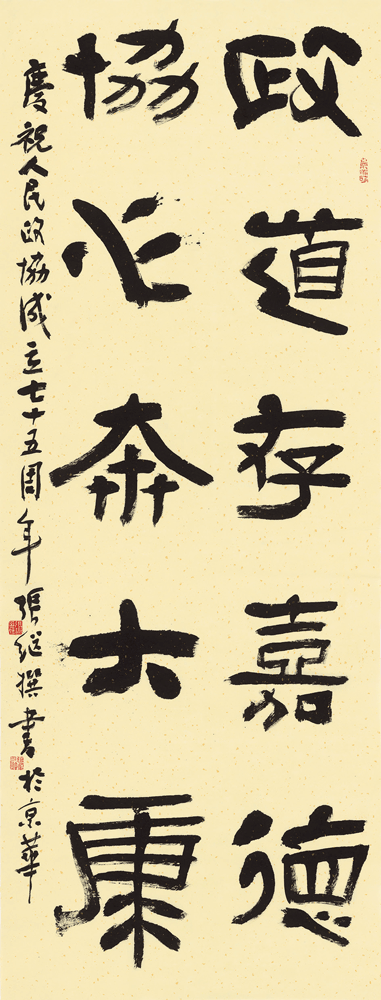 政道存嘉德
協心奔大康
慶祝人民政協成立七十五周年張繼撰書於京華